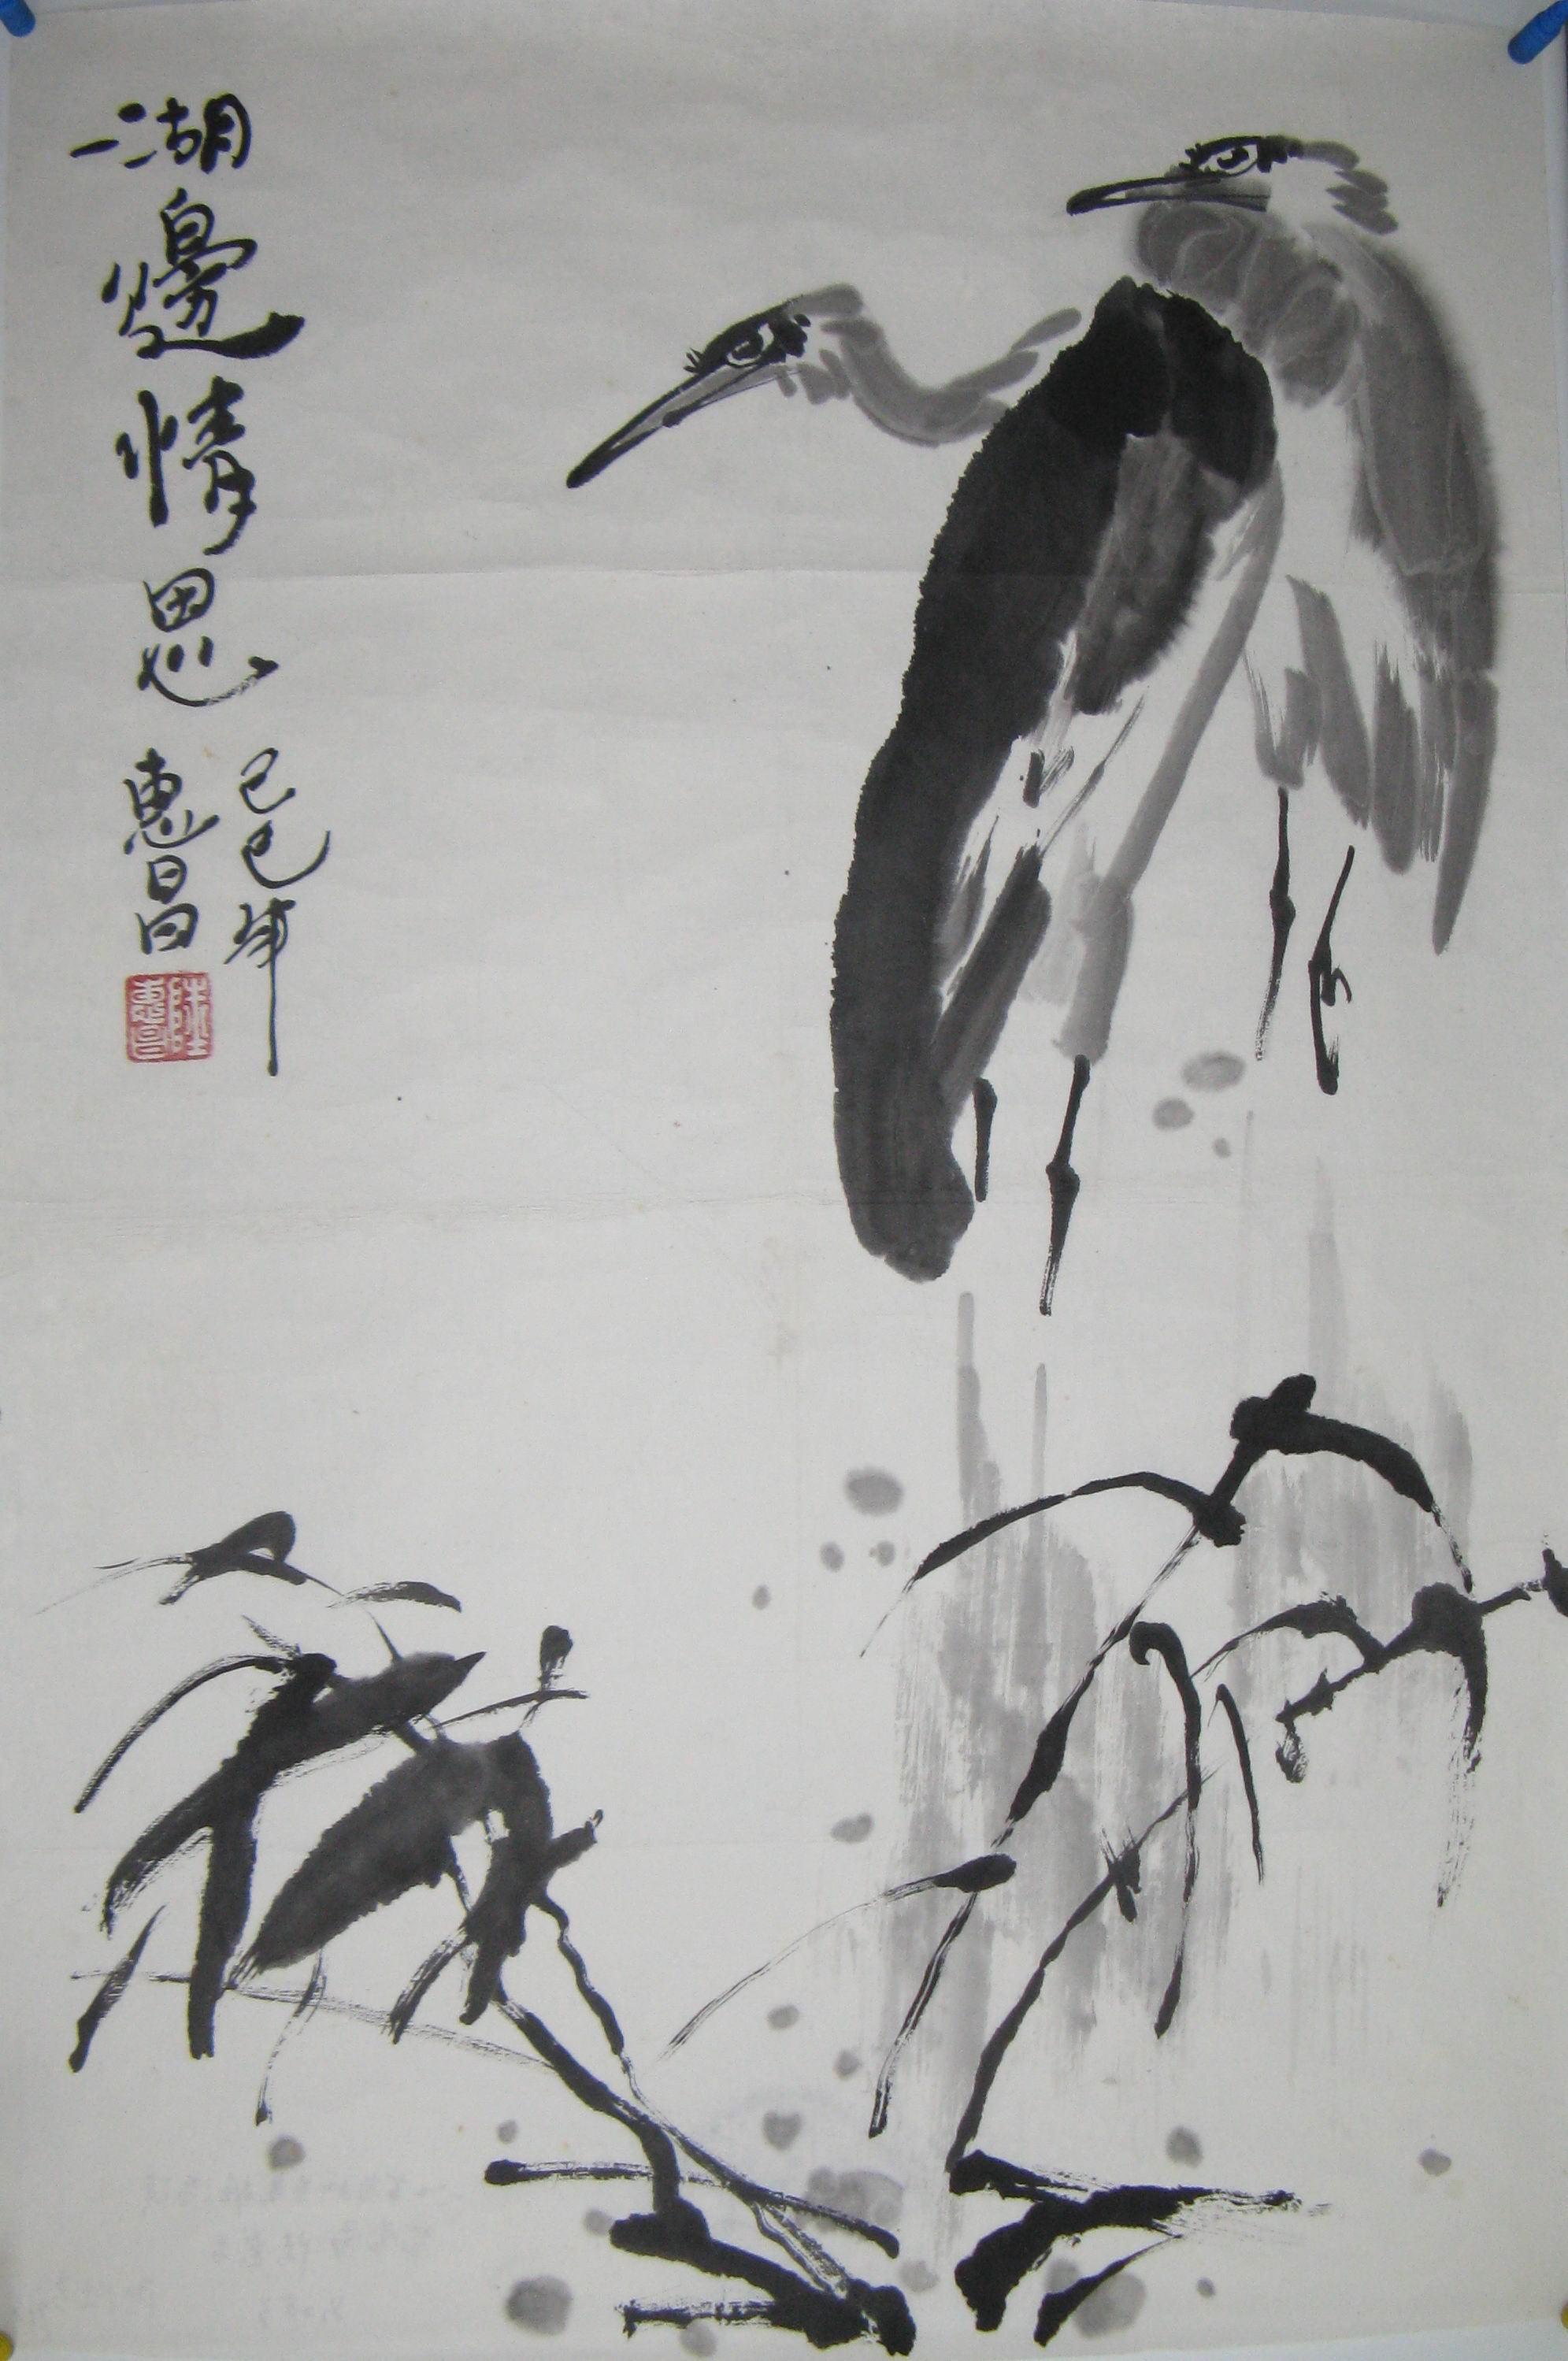 湖邊情思
己巳年
惠昌